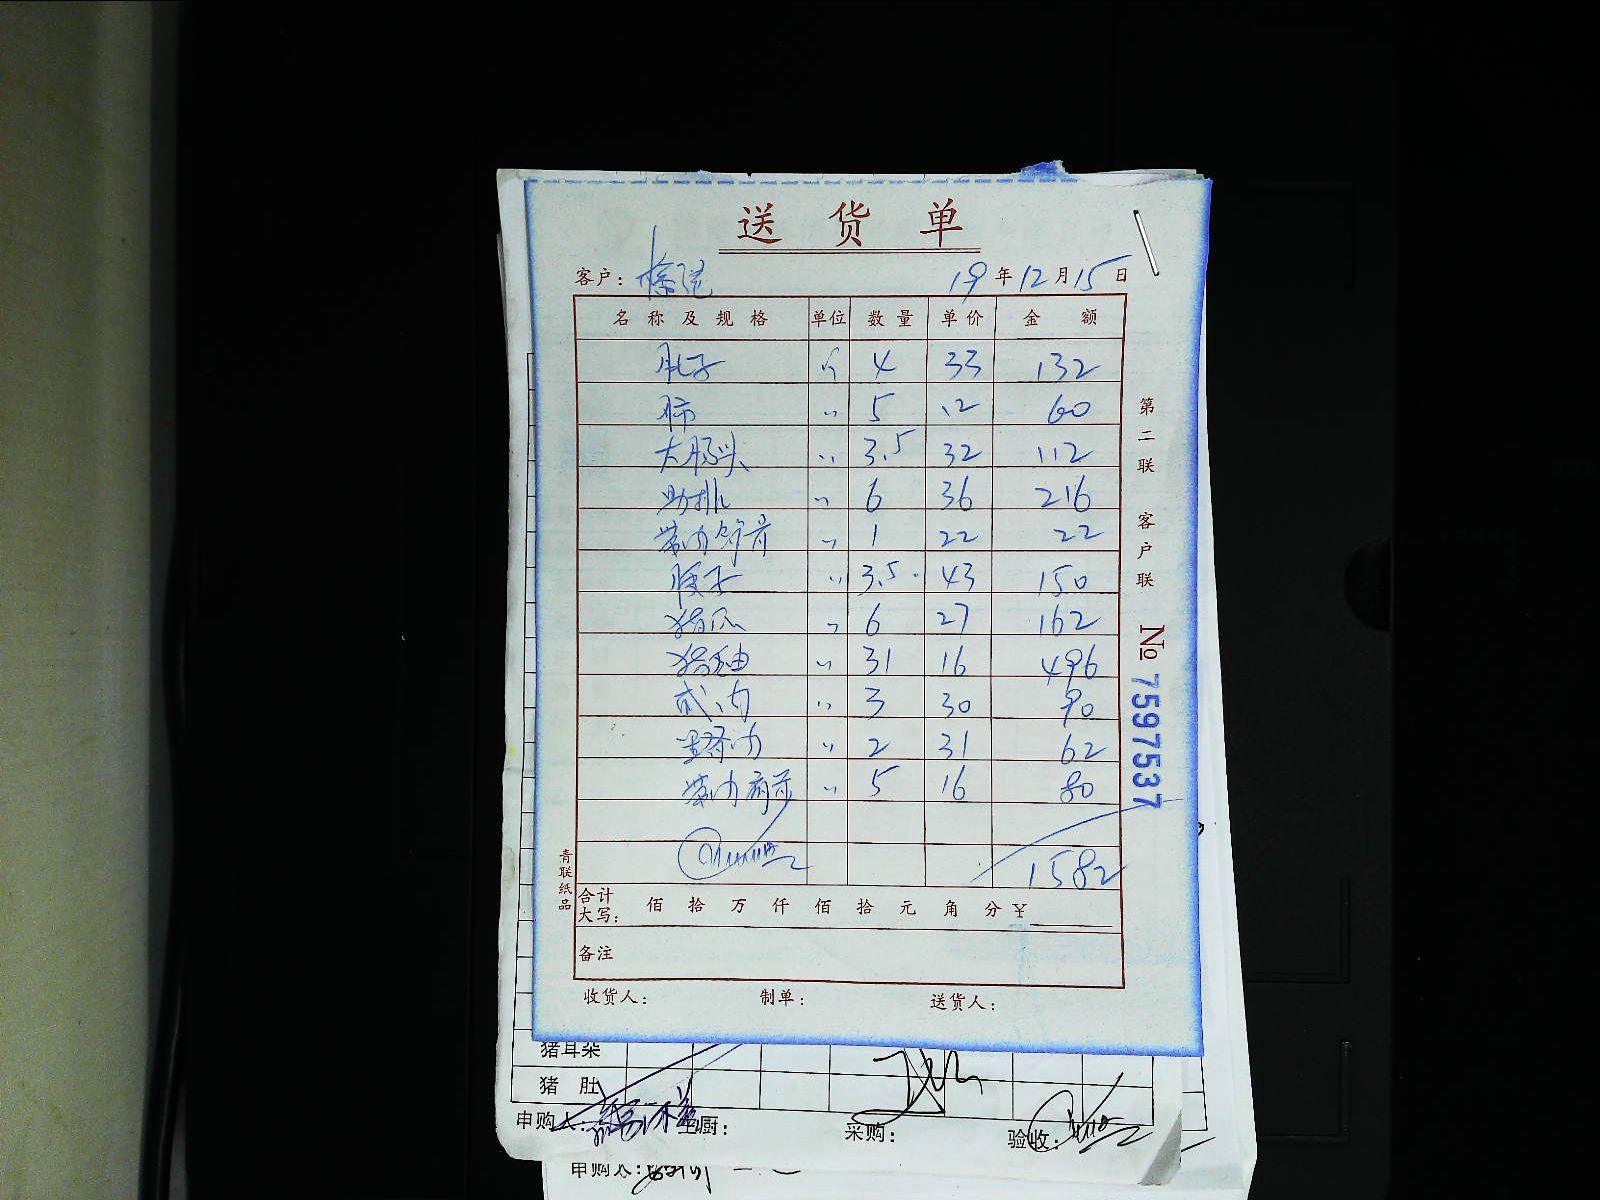 送货单
客户: 19年12月15日
名称及规格 单位 数量 单价 金额
肚子 个 4 33 132
肺 〃 5 12 60
大肠头 〃 3.5 32 112
肋排 〃 6 36 216
带肉 〃 1 22 22
腰子 〃 3.5 43 150
猪爪 〃 6 27 162
猪油 〃 31 16 496
〃 3 30 90
里脊肉 〃 2 31 62
带肉 〃 5 16 80
1582
合计大写: 佰 拾 万 仟 佰 拾 元 角 分 ¥
备注
收货人: 制单: 送货人:
第二联 客户联 No 7597537
青联纸品
猪耳朵
猪肚
申购人: 主厨: 采购: 验收:
申购人: